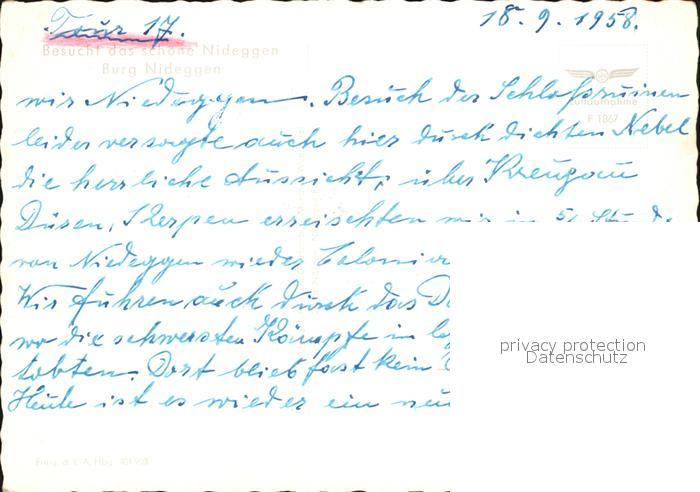 Tour 17.
18.9.1958.
Besucht das schöne Nideggen
Burg Nideggen
Luftaufnahme
F 1867
wir Niedeggen. Besuch der Schloßruinen
leider versagte auch hier durch dichten Nebel
die herrliche Aussicht, über Kreuzau
Düren, Kerpen erreichten wir in
von Niedeggen wieder Colonia
Wir fuhren auch durch das
wo die schwersten Kämpfe im
tobten. Dort blieb fast kein
Heute ist es wieder ein neu
privacy protection
Datenschutz